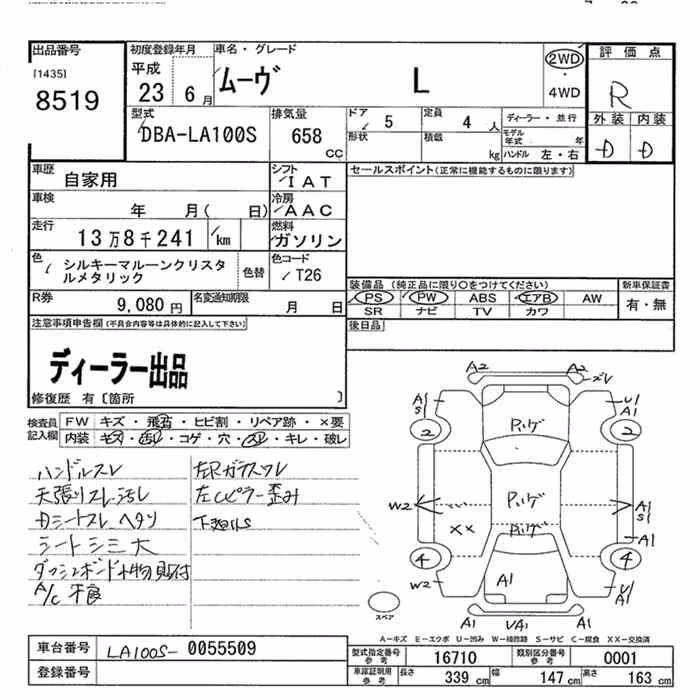 出品番号
[1435]
8519
初度登録年月
平成
23 6 月
車名・グレード
ムーヴ L
2WD
・
4WD
評価点
R
外装 内装
D D
型式
DBA-LA100S
排気量
658 CC
ドア 5
形状
定員 4 人
積載 kg
ディーラー・並行
モデル年式 年
ハンドル 左・右
車歴
自家用
シフト
IAT
車検
年 月( 日)
冷房
AAC
走行
13万8千241 km
燃料
ガソリン
色
シルキーマルーンクリスタ
ルメタリック
色替
色コード
T26
R券
9,080 円
名変通知期限
月 日
セールスポイント(正常に機能するものに限ります)
装備品(純正品に限り〇をつけてください)
新車保証書
PS PW ABS エアB AW
SR ナビ TV カワ
有・無
後日品
注意事項申告欄(不具合内容等は具体的に記入して下さい)
ディーラー出品
修復歴 有〔箇所 〕
検査員
記入欄
FW キズ・飛石・ヒビ割・リペア跡・×要
内装 キズ・汚レ・コゲ・穴・スレ・キレ・破レ
ハンドルスレ
天張りスレ汚レ
Dシートスレ ヘタリ
シートシミ大
ダッシュボード小物貼付
A/C不良
左Rガラスワレ
左Cピラー歪み
下廻りS
A2 A2
ズレ
A1 S1
U1 A1
2 2
Pハゲ
W2
Pハゲ
A1 S1
XX
Pハゲ
A1
4 4
W2
U1 A1
A1
A1 U41 A1
スペア
A−キズ E−エクボ U−凹み W−補修跡 S−サビ C−腐食 XX−交換済
車台番号
LA100S- 0055509
登録番号
型式指定番号
参考
16710
類別区分番号
参考
0001
車庫証明用
参考
長さ 339 cm 幅 147 cm 高さ 163 cm